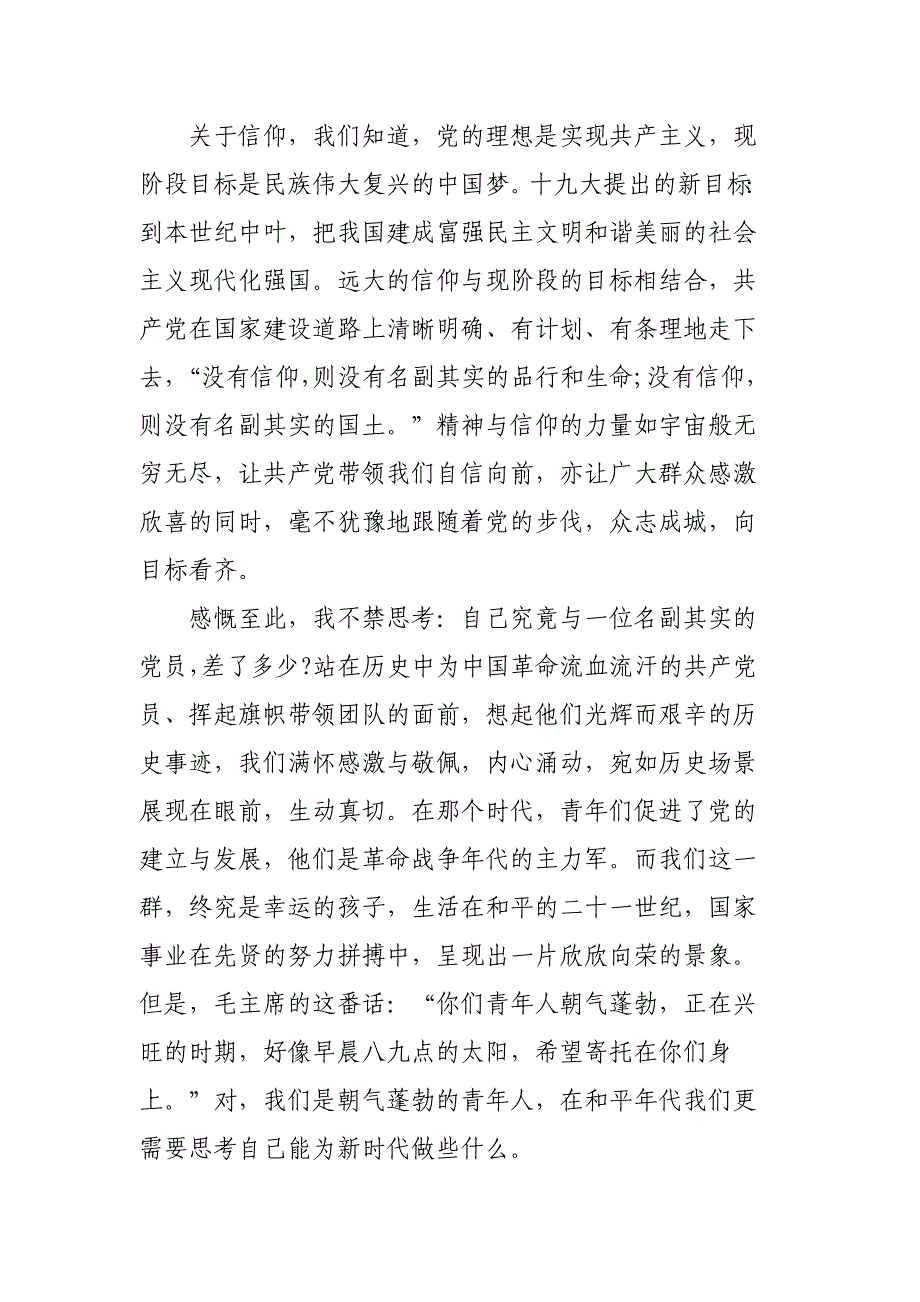 关于信仰，我们知道，党的理想是实现共产主义，现
阶段目标是民族伟大复兴的中国梦。十九大提出的新目标:
到本世纪中叶，把我国建成富强民主文明和谐美丽的社会
主义现代化强国。远大的信仰与现阶段的目标相结合，共
产党在国家建设道路上清晰明确、有计划、有条理地走下
去，“没有信仰,则没有名副其实的品行和生命;没有信仰,
则没有名副其实的国土。”精神与信仰的力量如宇宙般无
穷无尽，让共产党带领我们自信向前，亦让广大群众感激
欣喜的同时，毫不犹豫地跟随着党的步伐，众志成城，向
目标看齐。
感慨至此，我不禁思考：自己究竟与一位名副其实的
党员,差了多少?站在历史中为中国革命流血流汗的共产党
员、挥起旗帜带领团队的面前，想起他们光辉而艰辛的历
史事迹，我们满怀感激与敬佩，内心涌动，宛如历史场景
展现在眼前，生动真切。在那个时代，青年们促进了党的
建立与发展，他们是革命战争年代的主力军。而我们这一
群，终究是幸运的孩子，生活在和平的二十一世纪，国家
事业在先贤的努力拼搏中，呈现出一片欣欣向荣的景象。
但是，毛主席的这番话：“你们青年人朝气蓬勃，正在兴
旺的时期，好像早晨八九点的太阳，希望寄托在你们身
上。”对，我们是朝气蓬勃的青年人，在和平年代我们更
需要思考自己能为新时代做些什么。